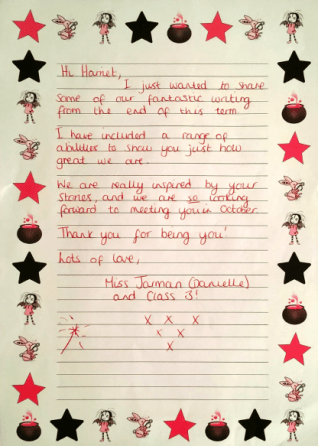 Hi Harriet,
I just wanted to share
some of our fantastic writing
from the end of this term.
I have included a range of
abilities to show you just how
great we are.
We are really inspired by your
stories, and we are so looking
forward to meeting you in October.
Thank you for being you!
Lots of love,
Miss Jarman (Danielle)
and Class 13!
x x x
x x
x